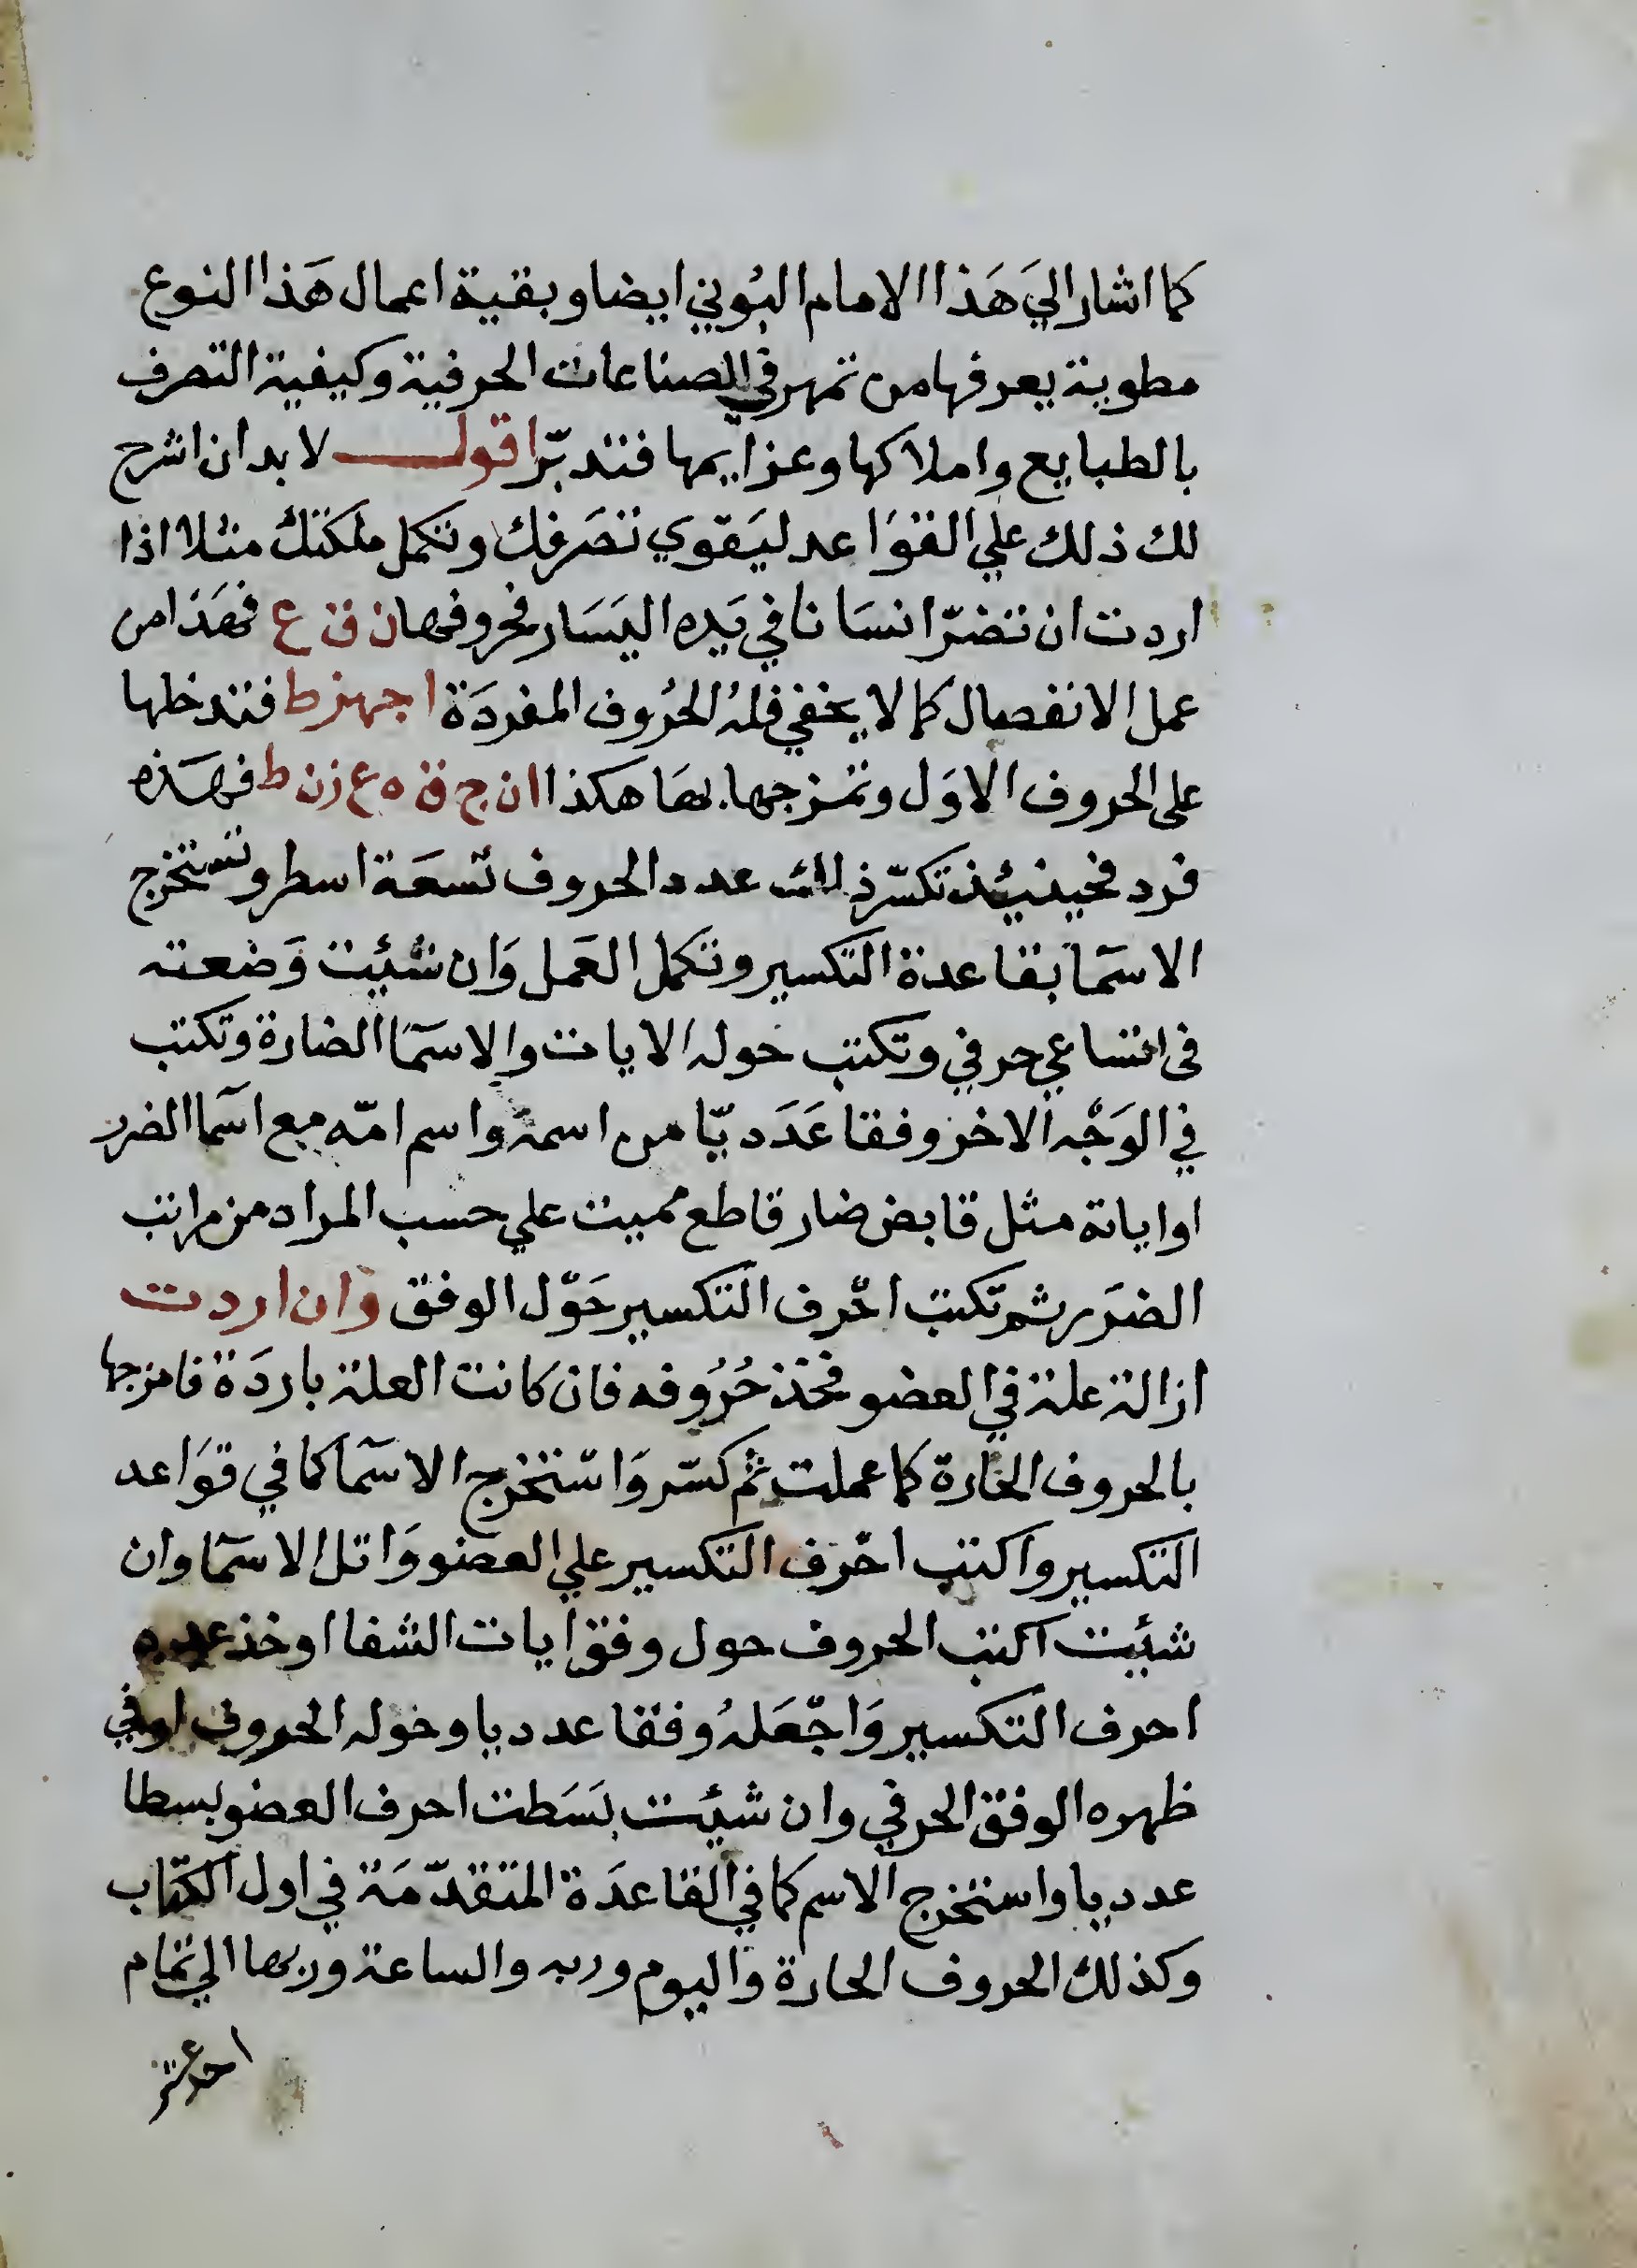 كما اشار الي هَذا الامام البُوني ايضا وبقية اعمال هَذا النوع
مطوية يعرفها من تمهر في الصناعات الحرفية وكيفية التصرف
بالطبايع واملاكها وعزايمها فتدبّر اقول لا بد ان اشرح
لك ذلك علي القوَاعد ليَقوي تصَرفك وتكمل ملكتك مثلا اذا
اردت ان تضرّ انسَانا في يَده اليَسَار فحروفها ن ق ع فهَذا من
عمل الانفصال كما لا يخفي فلهُ الحرُوف المفردَة ا ج ه ز ط فتدخلها
على الحروف الاوَل وتمزجها بهَا هكذا ا ن ج ق ه ع ز ن ط فهَذه
فرد فحينئذ تكسّر ذلك عدد الحروف تسعَة اسطر وتستخرج
الاسمَا بقاعدة التكسير وتكمل العَمل وَان شئيت وَضعته
في اتساعي حرفي وتكتب حوله الايات والاسمَا الضارة وتكتب
في الوَجْه الاخر وفقا عَدَديّا من اسمهِ واسم امّه مع اسما الضرر
او اياته مثل قابض ضار قاطع مميت علي حسب المراد من مراتب
الضرَر ثم تكتب احْرف التكسير حَوْل الوفق وَان اردت
ازالة علة في العضو فخذ حُرُوفه فان كانت العلة باردَة فامزجها
بالحروف الحَارة كما عملت ثم كسّر وَاسْتخرج الاسمَا كما في قوَاعد
التكسير واكتب احْرف التكسير علي العضو وَاتل الاسمَا وان
شئيت اكتب الحروف حول وفق ايات الشفا او خذ عدد
احرف التكسير وَاجْعَلهُ وفقا عدديا وحوله الحروف او في
ظهره الوفق الحرفي وان شئيت بسَطت احرف العضو بسطا
عدديا واستخرج الاسم كما في القاعدَة المتقدّمَة في اول الكتاب
وكذلك الحروف الحارة واليوم وربه والساعة وربها الي تمام
احد عشر